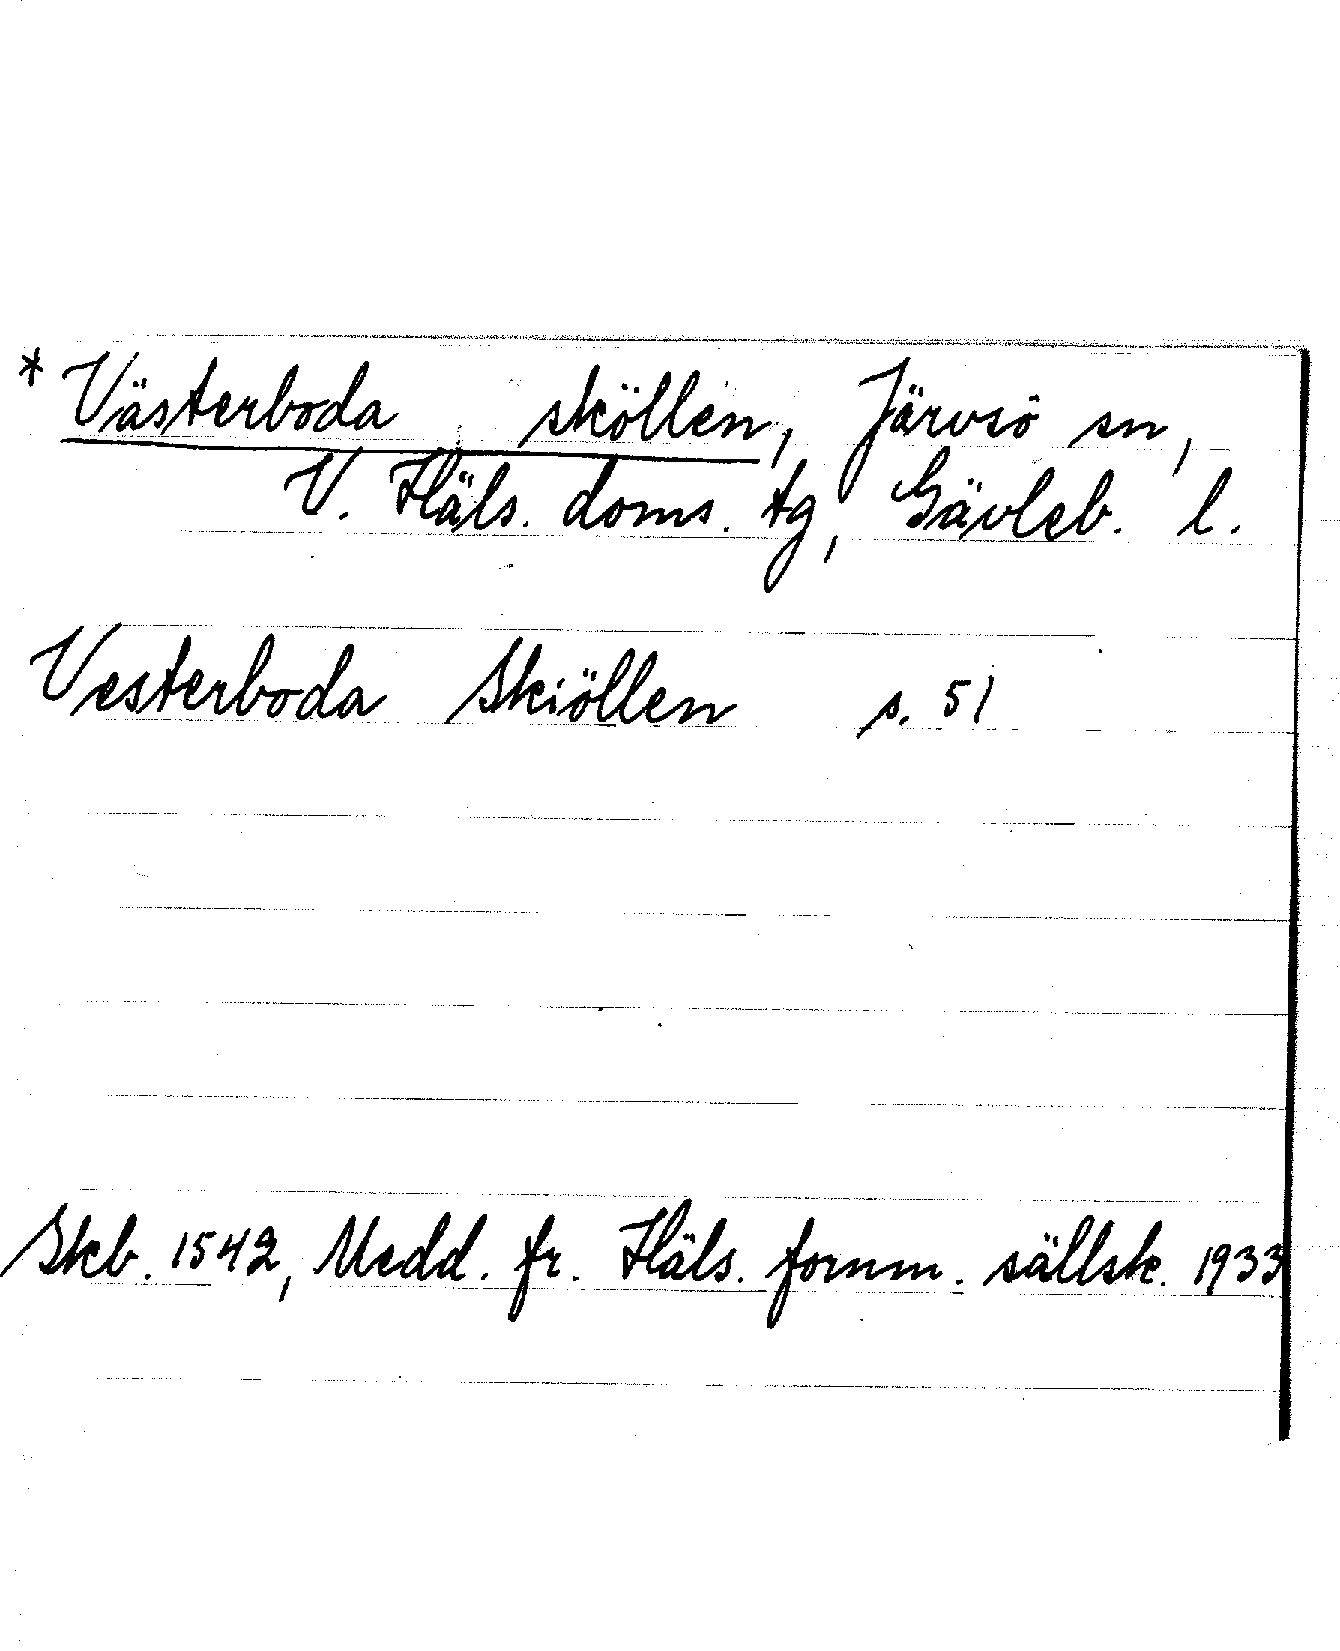 * Västerboda sköllen, Järvsö sn,
V. Häls. doms. tg, Gävleb. l.
Vesterboda Skiöllen s. 51
Skb. 1542, Medd. fr. Häls. fornm. sällsk. 1933